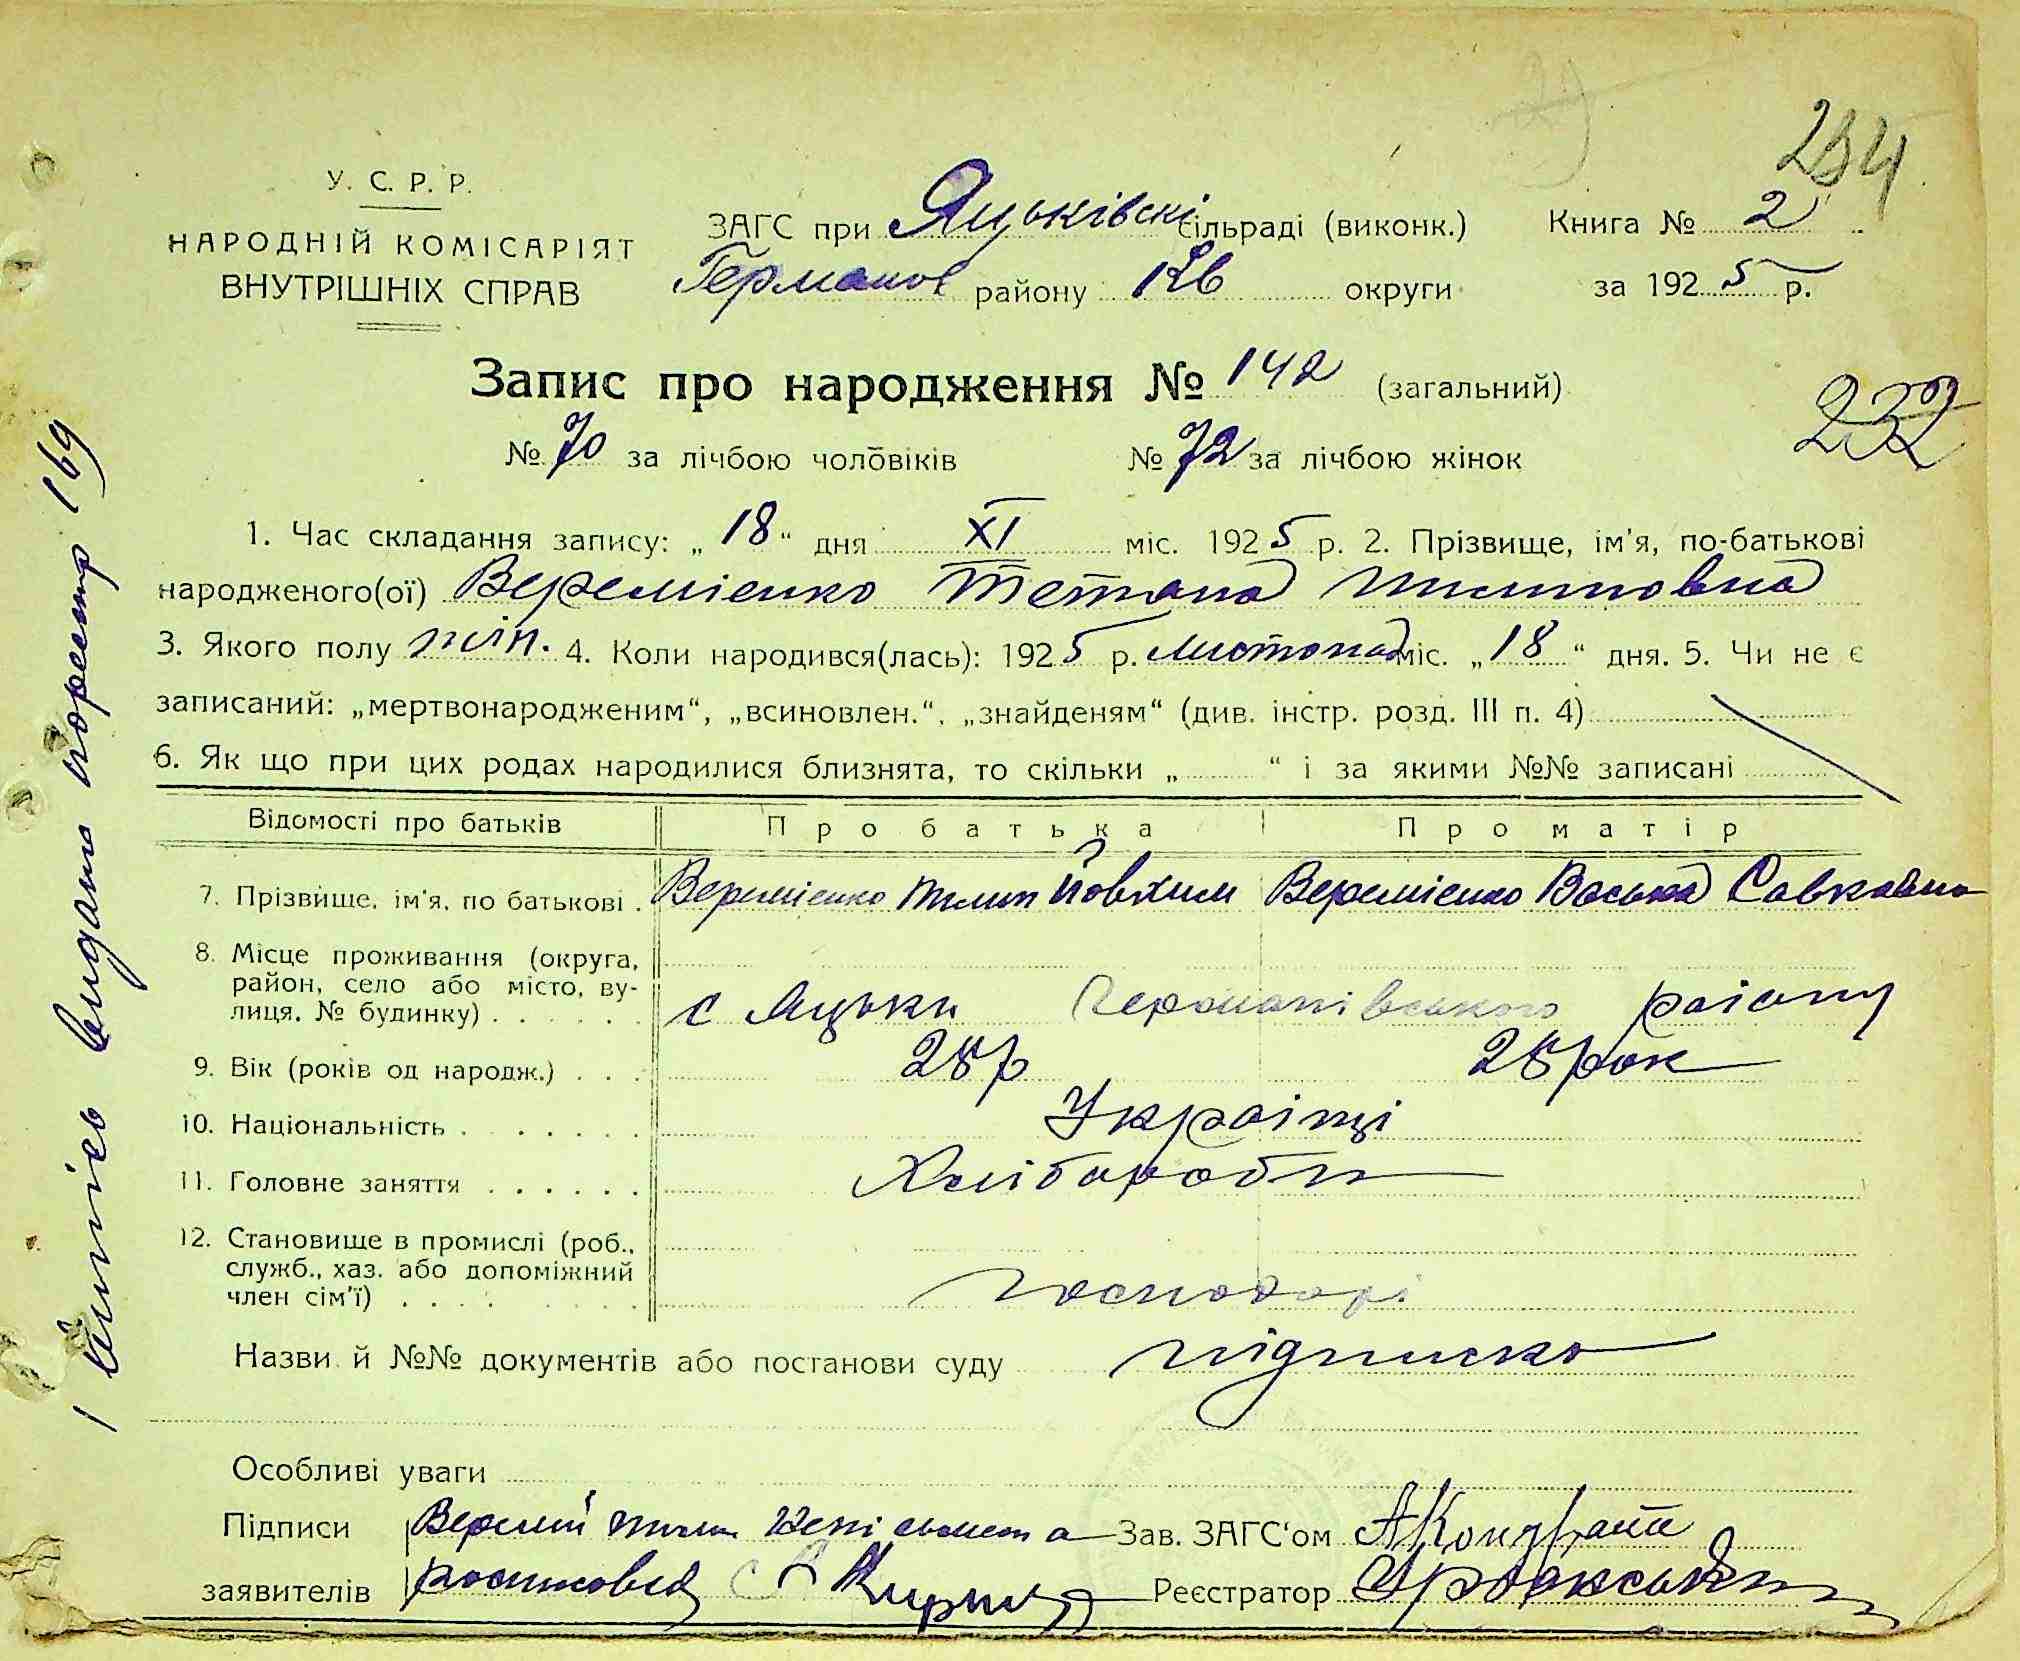 254
У. С. Р. Р.
НАРОДНІЙ КОМІСАРІЯТ
ВНУТРІШНІХ СПРАВ
ЗАГС при Яцьківскі сільраді (виконк.) Книга № 2
Германов району Кв округи за 1925 р.
Запис про народження № 142 (загальний)
№ 70 за лічбою чоловіків № 72 за лічбою жінок
232
1. Час складання запису: „18“ дня XI міс. 1925 р. 2. Прізвище, ім'я, по-батькові
народженого(ої) Веремієнко Тетяна Пилиповна
3. Якого полу жін. 4. Коли народився(лась): 1925 р. листопад міс. „18“ дня. 5. Чи не є
записаний: „мертвонародженим“, „всиновлен.“, „знайденям“ (див. інстр. розд. III п. 4)
6. Як що при цих родах народилися близнята, то скільки „ “ і за якими №№ записані
Відомості про батьків Про батька Про матір
7. Прізвище, ім'я, по батькові. Веремієнко Пилип Йовхим Веремієнко Васька Савковна
8. Місце проживання (округа,
район, село або місто, ву-
лиця, № будинку) с Яцьки Германівського району
9. Вік (років од народж.) 28р 28 рок
10. Національність Українці
11. Головне заняття Хлібороби
12. Становище в промислі (роб.,
служб., хаз. або допоміжний
член сім'ї) господарі
Назви й №№ документів або постанови суду підписка
Особливі уваги
Підписи Веремій Пилип Зав. ЗАГС'ом А Кондрат
заявителів росписовся Реєстратор
1 випись видано пореестр 169